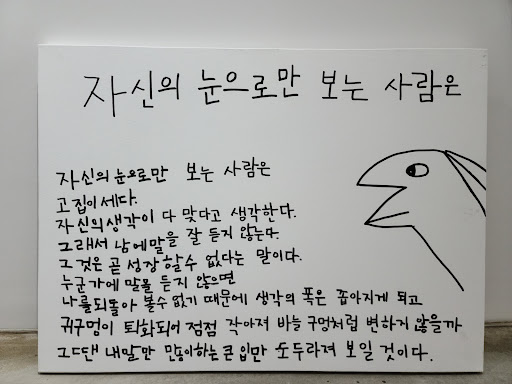 자신의 눈으로만 보는 사람은
자신의 눈으로만 보는 사람은
고집이 세다.
자신의 생각이 다 맞다고 생각한다.
그래서 남에 말을 잘 듣지 않는다.
그것은 곧 성장할 수 없다는 말이다.
누군가에 말을 듣지 않으면
나를 되돌아 볼수 없기 때문에 생각의 폭은 좁아지게 되고
귀구멍이 퇴화되어 점점 작아져 바늘 구멍처럼 변하지 않을까
그땐 내말만 하는 큰 입만 도두라져 보일 것이다.